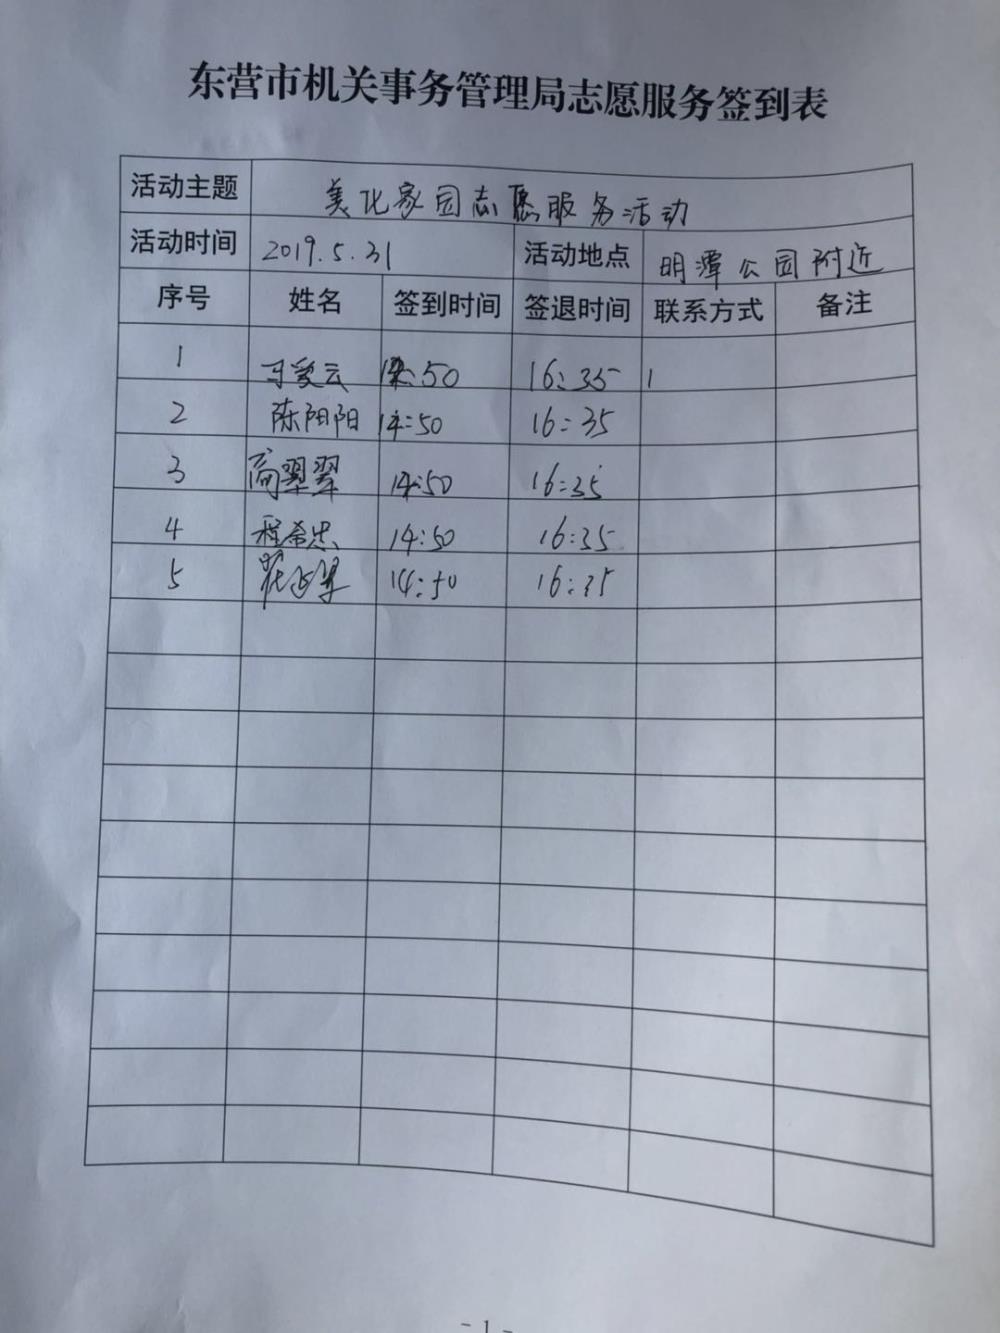 东营市机关事务管理局志愿服务签到表
活动主题 美化家园志愿服务活动
活动时间 2019.5.31 活动地点 明潭公园附近
序号 姓名 签到时间 签退时间 联系方式 备注
1 马爱云 14:50 16:35 1
2 陈阳阳 14:50 16:35
3 高翠翠 14:50 16:35
4 程希忠 14:50 16:35
5 14:50 16:35
- 1 -